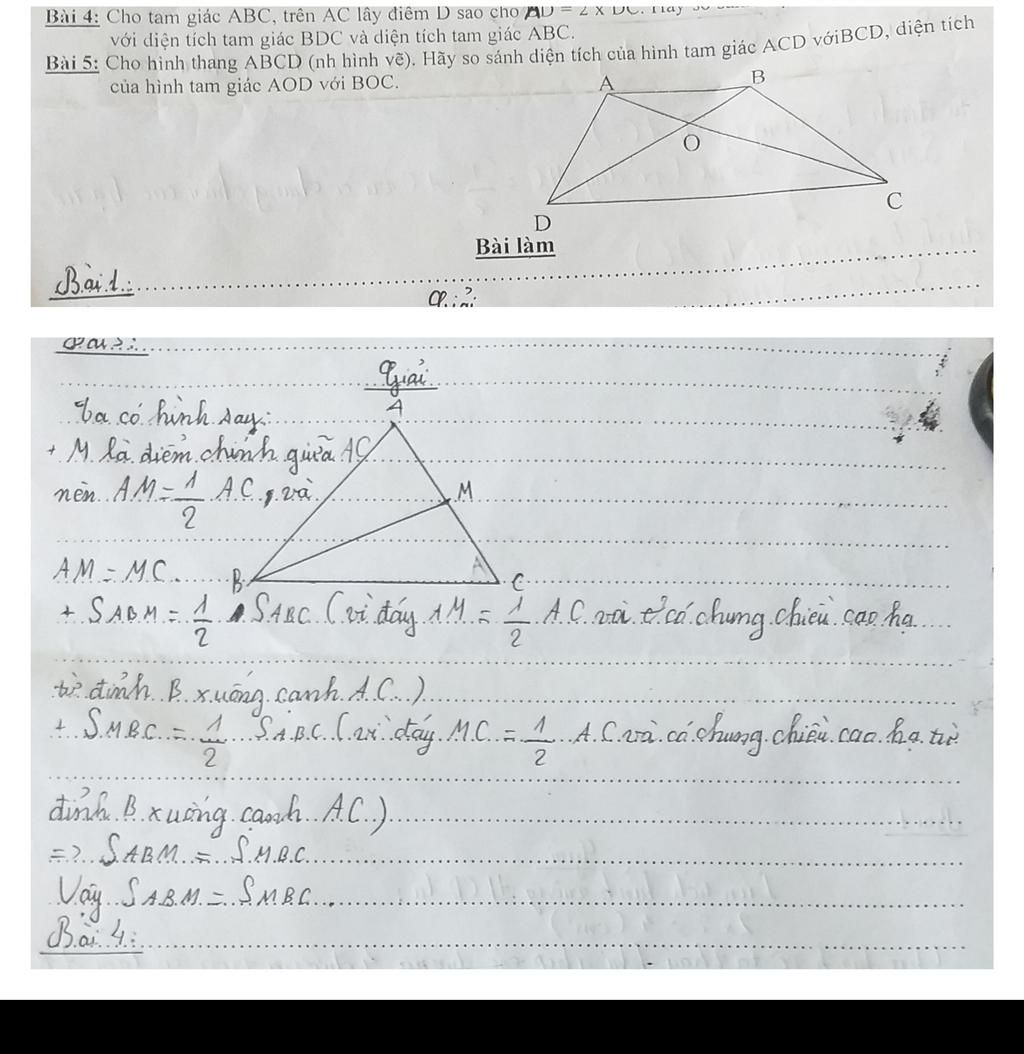 Bài 4: Cho tam giác ABC, trên AC lấy điểm D sao cho AD = 2 x DC.
với diện tích tam giác BDC và diện tích tam giác ABC.
Bài 5: Cho hình thang ABCD (nh hình vẽ). Hãy so sánh diện tích của hình tam giác ACD vớiBCD, diện tích
của hình tam giác AOD với BOC.
A
B
O
D
C
Bài làm
Bài 1:
Giải
Giải
Ta có hình sau:
A
+ M là điểm chính giữa AC
nên AM = 1/2 AC, và
M
AM = MC
B
C
+ SABM = 1/2 SABC (vì đáy AM = 1/2 AC và có chung chiều cao hạ
từ đỉnh B xuống cạnh AC)
+ SMBC = 1/2 SABC (vì đáy MC = 1/2 AC và có chung chiều cao hạ từ
đỉnh B xuống cạnh AC)
=> SABM = SMBC
Vậy SABM = SMBC.
Bài 4: